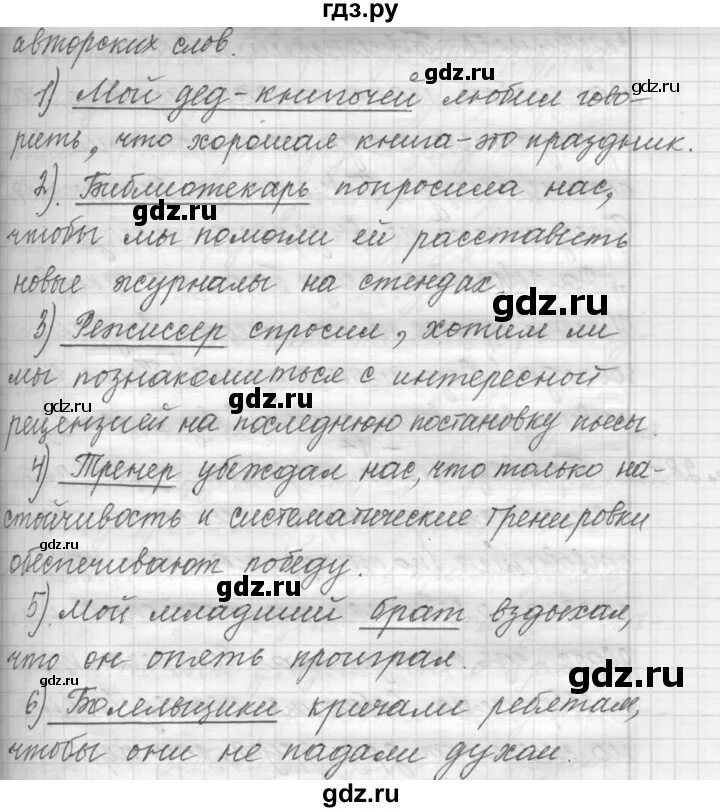 гдз.ру
авторских слов.
1) Мой дед-книгочей любил гово-
gdz.ru
рить, что хорошая книга-это праздник.
gdz.ru
2). Библиотекарь попросила нас,
gdz.ru
чтобы мы помогли ей расставить
gdz.ru
новые журналы на стендах.
gdz.ru
3) Режиссер спросил, хотим ли
gdz.ru
мы познакомиться с интересной
gdz.ru
gdz.ru
рецензией на последнюю постановку пьесы.
4) Тренер убеждал нас, что только на-
gdz.ru
стойчивость и систематические тренировки
gdz.ru
обеспечивают победу.
gdz.ru
5). Мой младший брат вздыхал,
gdz.ru
что он опять проиграл.
gdz.ru
gdz.ru
6) Болельщики кричали ребятам,
gdz.ru
чтобы они не падали духом.
gdz.ru
gdz.ru